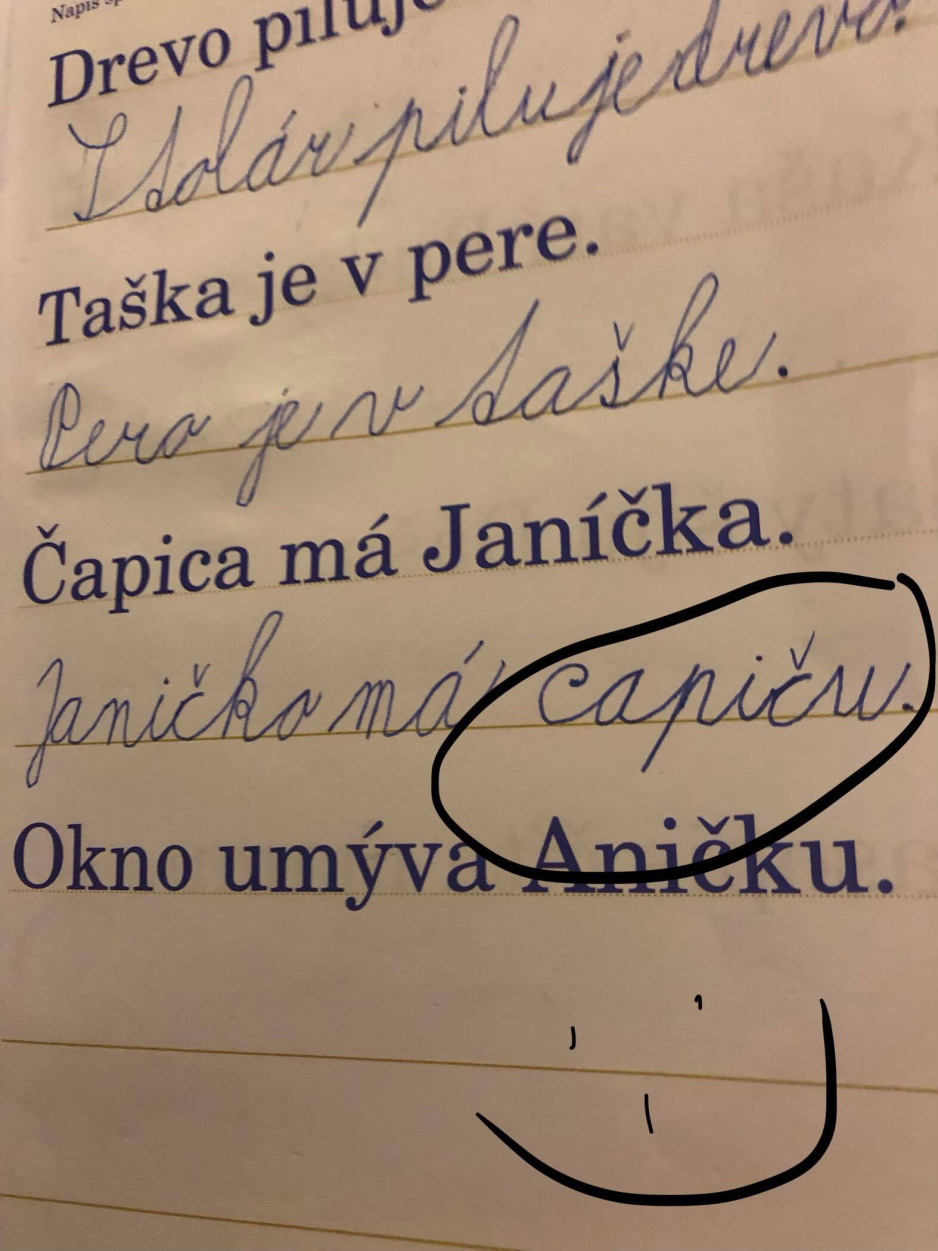 Napíš sp
Drevo piluje
Stolár piluje drevo.
Taška je v pere.
Pero je v taške.
Čapica má Janíčka.
Janičko má capiču.
Okno umýva Aničku.